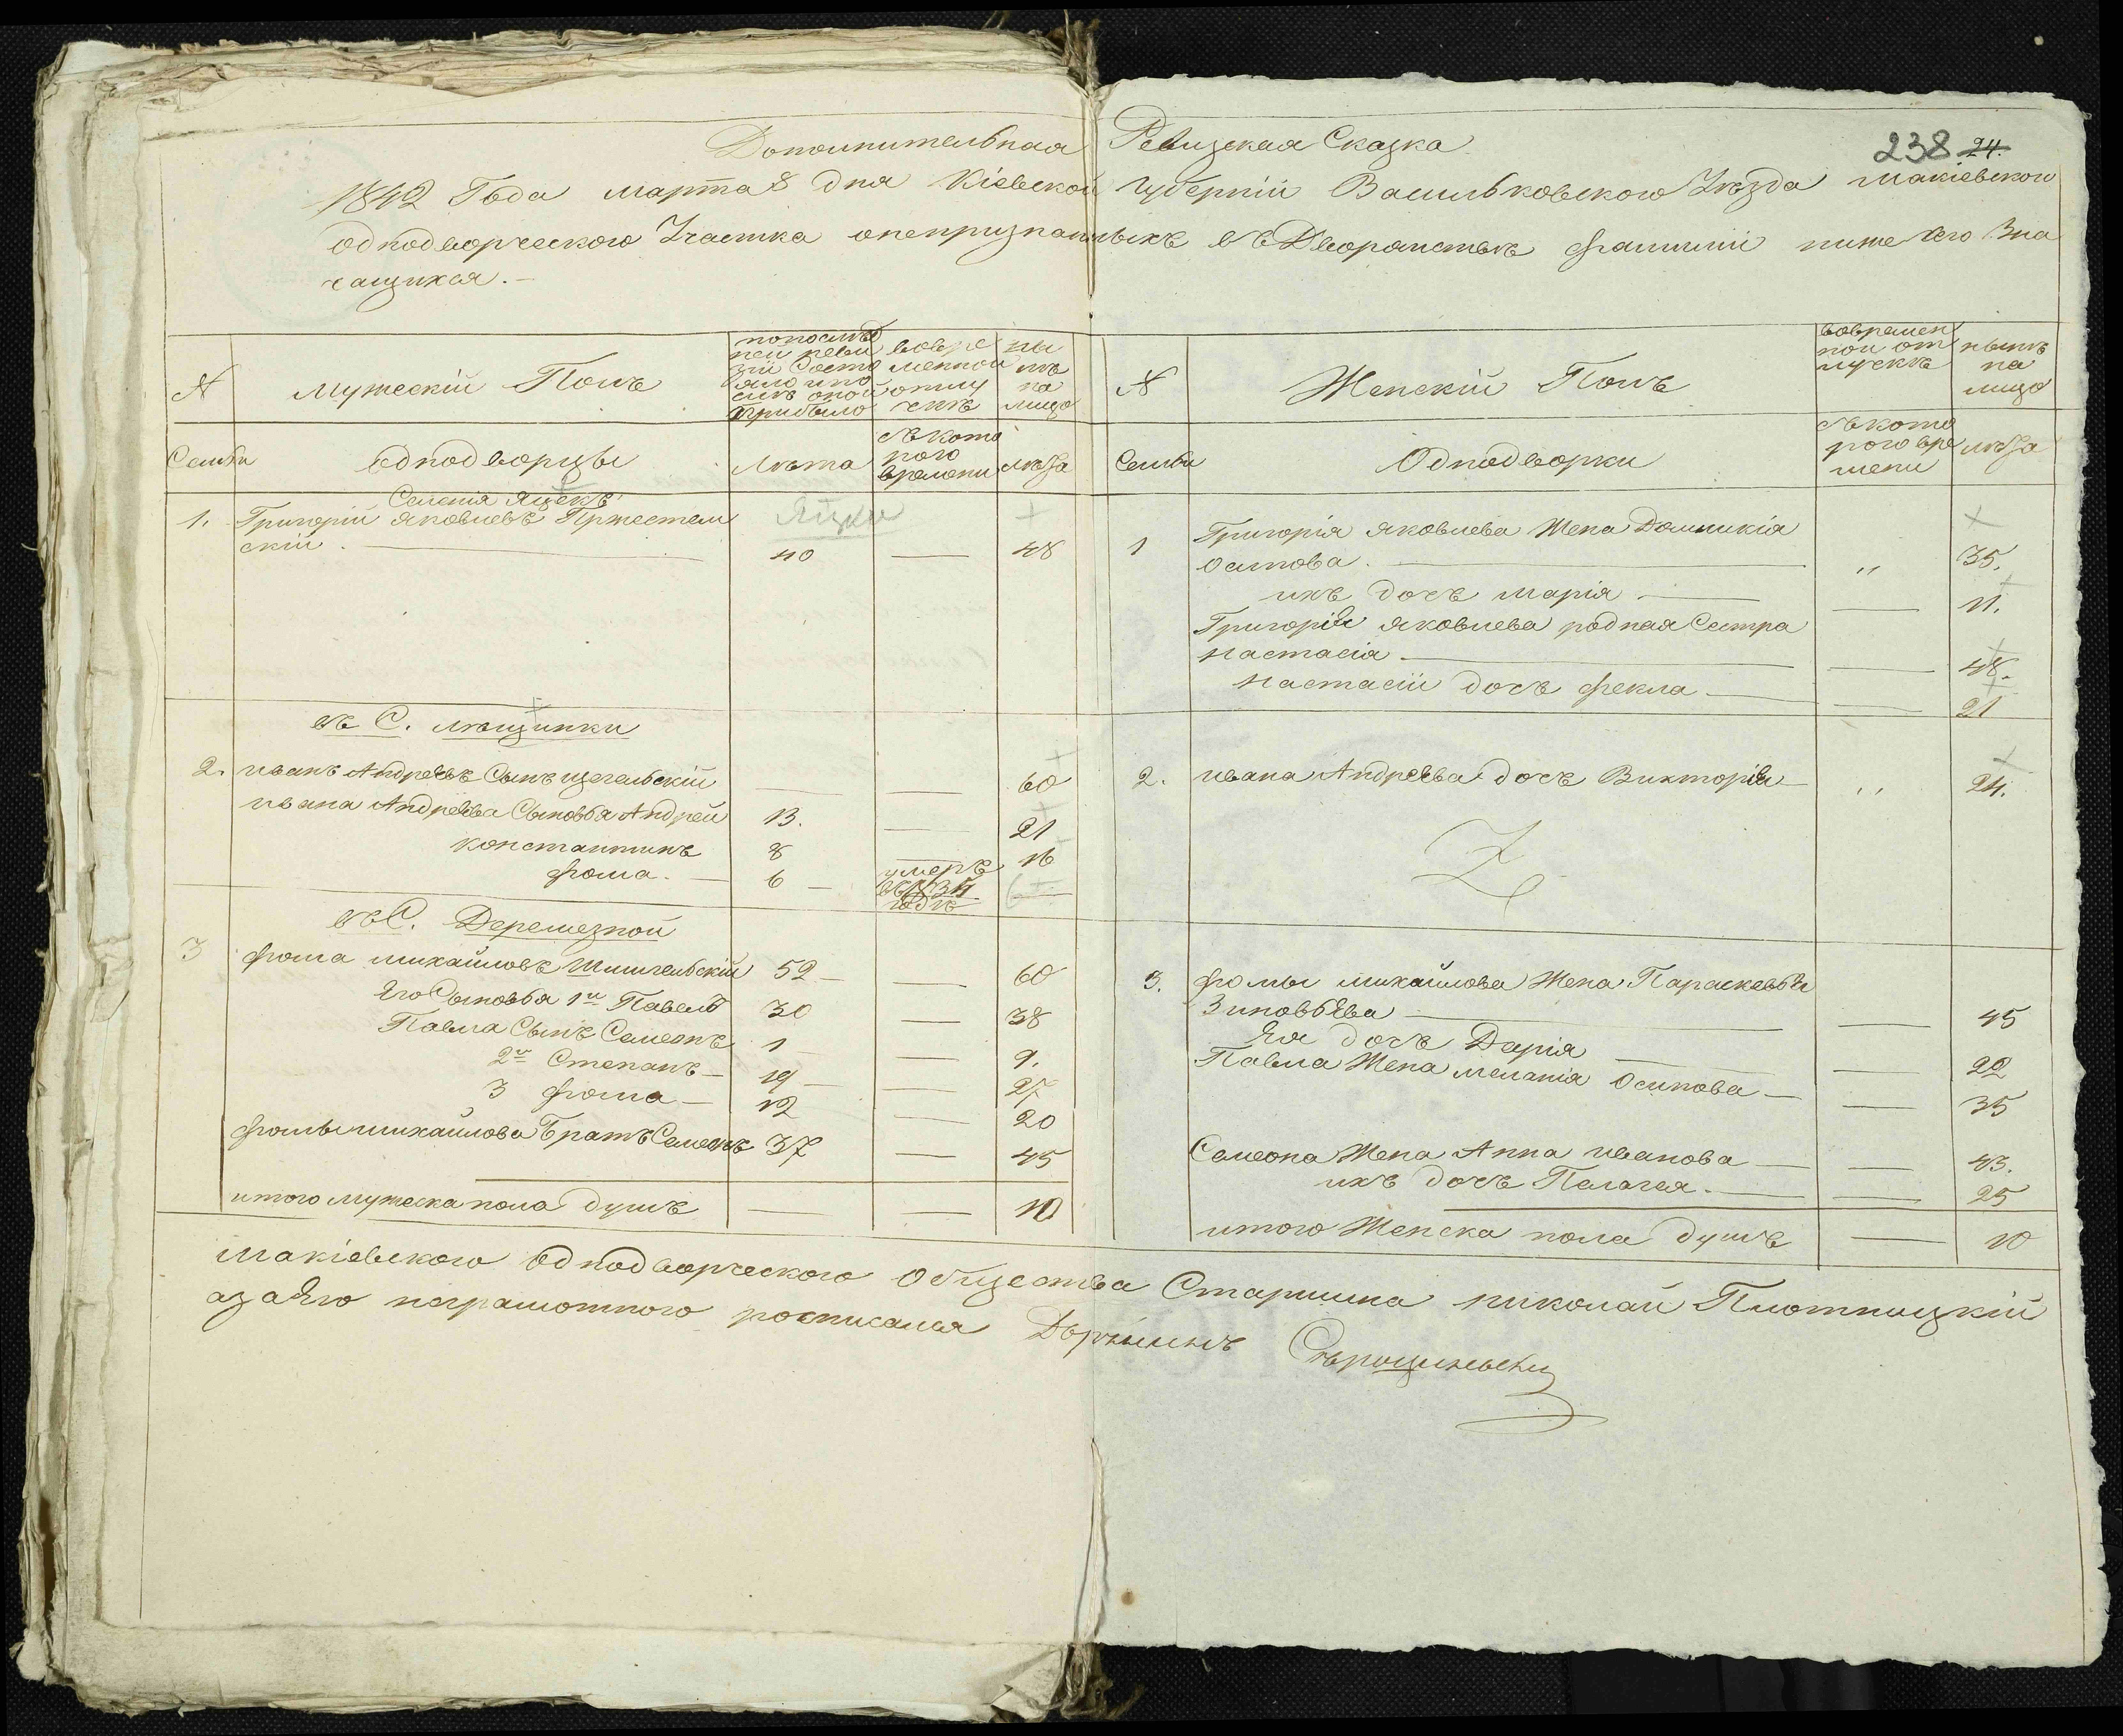 Дополнительная Ревизская Сказка
238 24.
1842 Года марта 8 дня Кіевской Губерніи Васильковского Уезда Макіевского
однодворческого Участка онепризнанныхъ въ Дворянстве фамилій ниже сего Зна
чащихся.-
№
Мужескій Полъ
попослед
ней реви
зіи Состо
яло ипо
сле оной
прибыло
вовре
менной
отлу
чкѣ
ны
нѣ
на
лицо
Семьи
однодворцы
Лѣта
Съкото
рого
времени
лѣта
Селенія Яцекъ
1. Григорій Яковлевъ Пржестель
скій.
Яцки
40 — 48
въ С. Лѣщинки
2. иванъ Андреевъ Сынъ щегельскій — — 60
ивана Андреева Сыновья Андрей 13. — 21
константинъ 8 — 16
фома. — 6 — умеръ
въ 1834
годѣ
въ С. Деремезной
3 фома михайловъ Шишчельскій 52 — — 60
Его Сыновья 1й Павелъ 30 — 38
Павла Сынъ Семенъ 1 — 9.
2й Степанъ — 19 — 27
3 фома — 12 — 20
фомы михайлова Братъ Семенъ 37 — 45
итого мужеска пола душъ — — 10
№
Женскій Полъ
вовремен
ной от
лучкѣ
нынѣ
на
лицо
Семьи
Однодворки
Съкото
рого вре
мени
лѣта
1 Григорія Яковлева Жена Домникія
Осипова. — „ 35.
ихъ дочь марія. — — 11.
Григорія Яковлева родная Сестра
настасія — — 48.
настасіи дочь фекла — — 21
2. ивана Андреева дочь Викторія — „ 24.
3. фомы михайлова Жена Параскевья
Зиновьева — — 45
Ея дочь Дарія — — 22
Павла Жена меланія Осипова — — 35
Семена Жена Анна иванова — — 43.
ихъ дочь Пелагея. — — 25
итого Женска пола душъ — 10
Макіевского Однодворческого Общества Старшина николай Плотницкій
азаЕго неграмотного росписался Дворянинъ